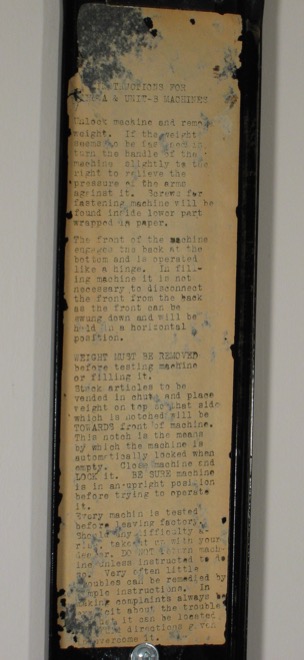 INSTRUCTIONS FOR
& UNIT-B MACHINES
Unlock machine and remove
weight. If the weight
seems to be fastened in,
turn the handle of the
machine slightly to the
right to relieve the
pressure of the arms
against it. Screws for
fastening machine will be
found inside lower part
wrapped in paper.
The front of the machine
engages the back at the
bottom and is operated
like a hinge. In fill-
ing machine it is not
necessary to disconnect
the front from the back
as the front can be
swung down and will be
held in a horizontal
position.
WEIGHT MUST BE REMOVED
before testing machine
or filling it.
Stack articles to be
vended in chute and place
weight on top so that side
which is notched will be
TOWARDS front of machine.
This notch is the means
by which the machine is
automatically locked when
empty. Close machine and
LOCK it. BE SURE machine
is in an upright position
before trying to operate
it.
Every machine is tested
before leaving factory.
Should any difficulty a-
rise, take it up with your
DO NOT return mach-
ine unless instructed to do
so. Very often little
troubles can be remedied by
simple instructions. In
making complaints always be
about the trouble
it can be located
directions given
overcome it.